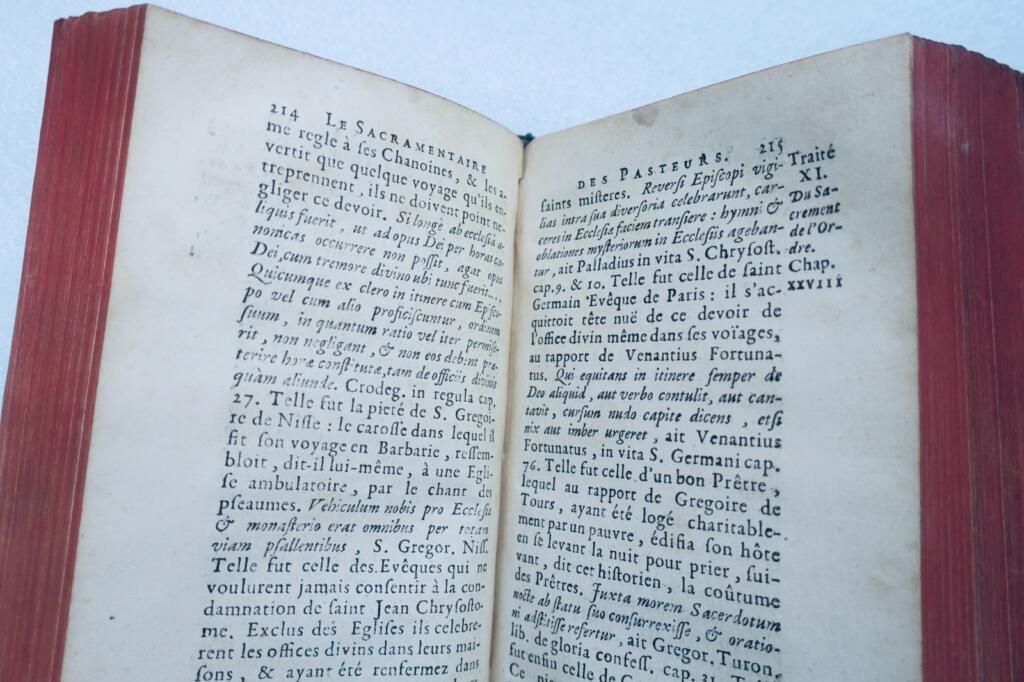 214 LE SACRAMENTAIRE
me regle à ſes Chanoines, & les a-
vertit que quelque voyage qu'ils en-
treprennent, ils ne doivent point ne-
gliger ce devoir. Si longè ab eccleſia a-
liquis fuerit, ut ad opus Dei per horas ca-
nonicas occurrere non poſſit, agat opus
Dei, cum tremore divino ubi tunc fuerit....
Quicumque ex clero in itinere cum Epiſco-
po vel cum alio proficiſcuntur, ordinem
ſuum, in quantum ratio vel iter permiſe-
rit, non negligant, & non eos debent præ-
terire horæ conſtitutæ, tam de officiis divinis
quàm aliunde. Crodeg. in regula cap.
27. Telle fut la pieté de S. Gregoi-
re de Niſſe : le caroſſe dans lequel il
fit ſon voyage en Barbarie, reſſem-
bloit, dit-il lui-même, à une Egli-
ſe ambulatoire, par le chant des
pſeaumes. Vehiculum nobis pro Eccleſia
& monaſterio erat omnibus per totam
viam pſallentibus, S. Gregor. Niſſ.
Telle fut celle des Evêques qui ne
voulurent jamais conſentir à la con-
damnation de ſaint Jean Chryſoſto-
me. Exclus des Egliſes ils celebre-
rent les offices divins dans leurs mai-
ſons, & ayant été renfermez dans
DES PASTEURS. 215
ſaints miſteres. Reverſi Epiſcopi vigi-
lias intra ſua diverſoria celebrarunt, car-
ceres in Eccleſiæ faciem tranſiere : hymni &
oblationes myſteriorum in Eccleſiis ageban-
tur, ait Palladius in vita S. Chryſoſt.
cap. 9. & 10. Telle fut celle de ſaint
Germain Evêque de Paris : il s'ac-
quittoit tête nuë de ce devoir de
l'office divin même dans ſes voïages,
au rapport de Venantius Fortuna-
tus. Qui equitans in itinere ſemper de
Deo aliquid, aut verbo contulit, aut can-
tavit, curſum nudo capite dicens, etſi
nix aut imber urgeret, ait Venantius
Fortunatus, in vita S. Germani cap.
76. Telle fut celle d'un bon Prêtre,
lequel au rapport de Gregoire de
Tours, ayant été logé charitable-
ment par un pauvre, édifia ſon hôte
en ſe levant la nuit pour prier, ſui-
vant, dit cet hiſtorien, la coûtume
des Prêtres. Juxta morem Sacerdotum
nocte ab ſtatu ſuo conſurrexiſſe, & oratio-
ni adſtitiſſe refertur, ait Gregor. Turon.
lib. de gloria confeſſ. cap. 31. Telle
fut enfin celle de
Ce
Traité
XI.
Du Sa-
crement
de l'Or-
dre.
Chap.
XXVIII